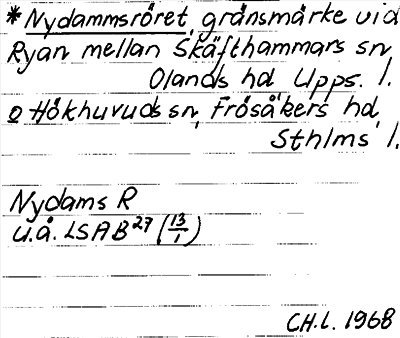 *Nydammsröret, gränsmärke vid
Ryan mellan Skäfthammars sn,
Olands hd, Upps. l.
o Hökhuvuds sn, Frösåkers hd,
Sthlms l.
Nydams R
u.å. LSA B²⁷ (13/1)
CH.L. 1968